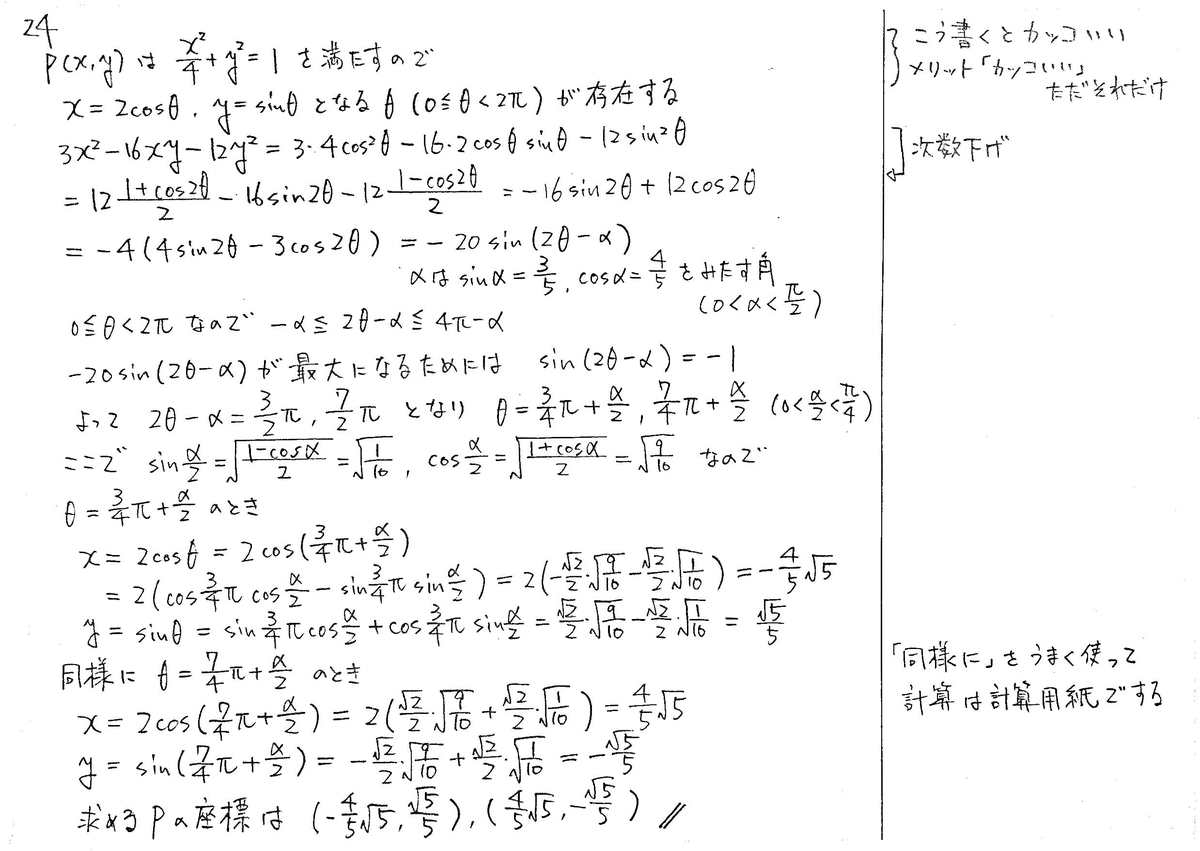 24
P(x,y) は x²/4 + y² = 1 を満たすので
x = 2cosθ, y = sinθ となる θ (0 ≦ θ < 2π) が存在する
3x² - 16xy - 12y² = 3・4cos²θ - 16・2cosθ sinθ - 12sin²θ
= 12 (1+cos2θ)/2 - 16sin2θ - 12 (1-cos2θ)/2 = -16sin2θ + 12cos2θ
= -4(4sin2θ - 3cos2θ) = -20sin(2θ-α)
αは sinα = 3/5, cosα = 4/5 をみたす角
(0<α<π/2)
0≦θ<2π なので -α ≦ 2θ-α ≦ 4π-α
-20sin(2θ-α) が最大になるためには sin(2θ-α) = -1
よって 2θ-α = 3/2 π, 7/2 π となり θ = 3/4 π + α/2, 7/4 π + α/2 (0<α/2<π/4)
ここで sin α/2 = √((1-cosα)/2) = √(1/10), cos α/2 = √((1+cosα)/2) = √(9/10) なので
θ = 3/4 π + α/2 のとき
x = 2cosθ = 2cos(3/4 π + α/2)
= 2(cos 3/4 π cos α/2 - sin 3/4 π sin α/2) = 2(-√2/2・√(9/10) - √2/2・√(1/10)) = -4/5 √5
y = sinθ = sin 3/4 π cos α/2 + cos 3/4 π sin α/2 = √2/2・√(9/10) - √2/2・√(1/10) = √5/5
同様に θ = 7/4 π + α/2 のとき
x = 2cos(7/4 π + α/2) = 2(√2/2・√(9/10) + √2/2・√(1/10)) = 4/5 √5
y = sin(7/4 π + α/2) = -√2/2・√(9/10) + √2/2・√(1/10) = -√5/5
求めるPの座標は (-4/5 √5, √5/5), (4/5 √5, -√5/5) //
こう書くとカッコいい
メリット「カッコいい」
ただそれだけ
次数下げ
「同様に」をうまく使って
計算は計算用紙でする